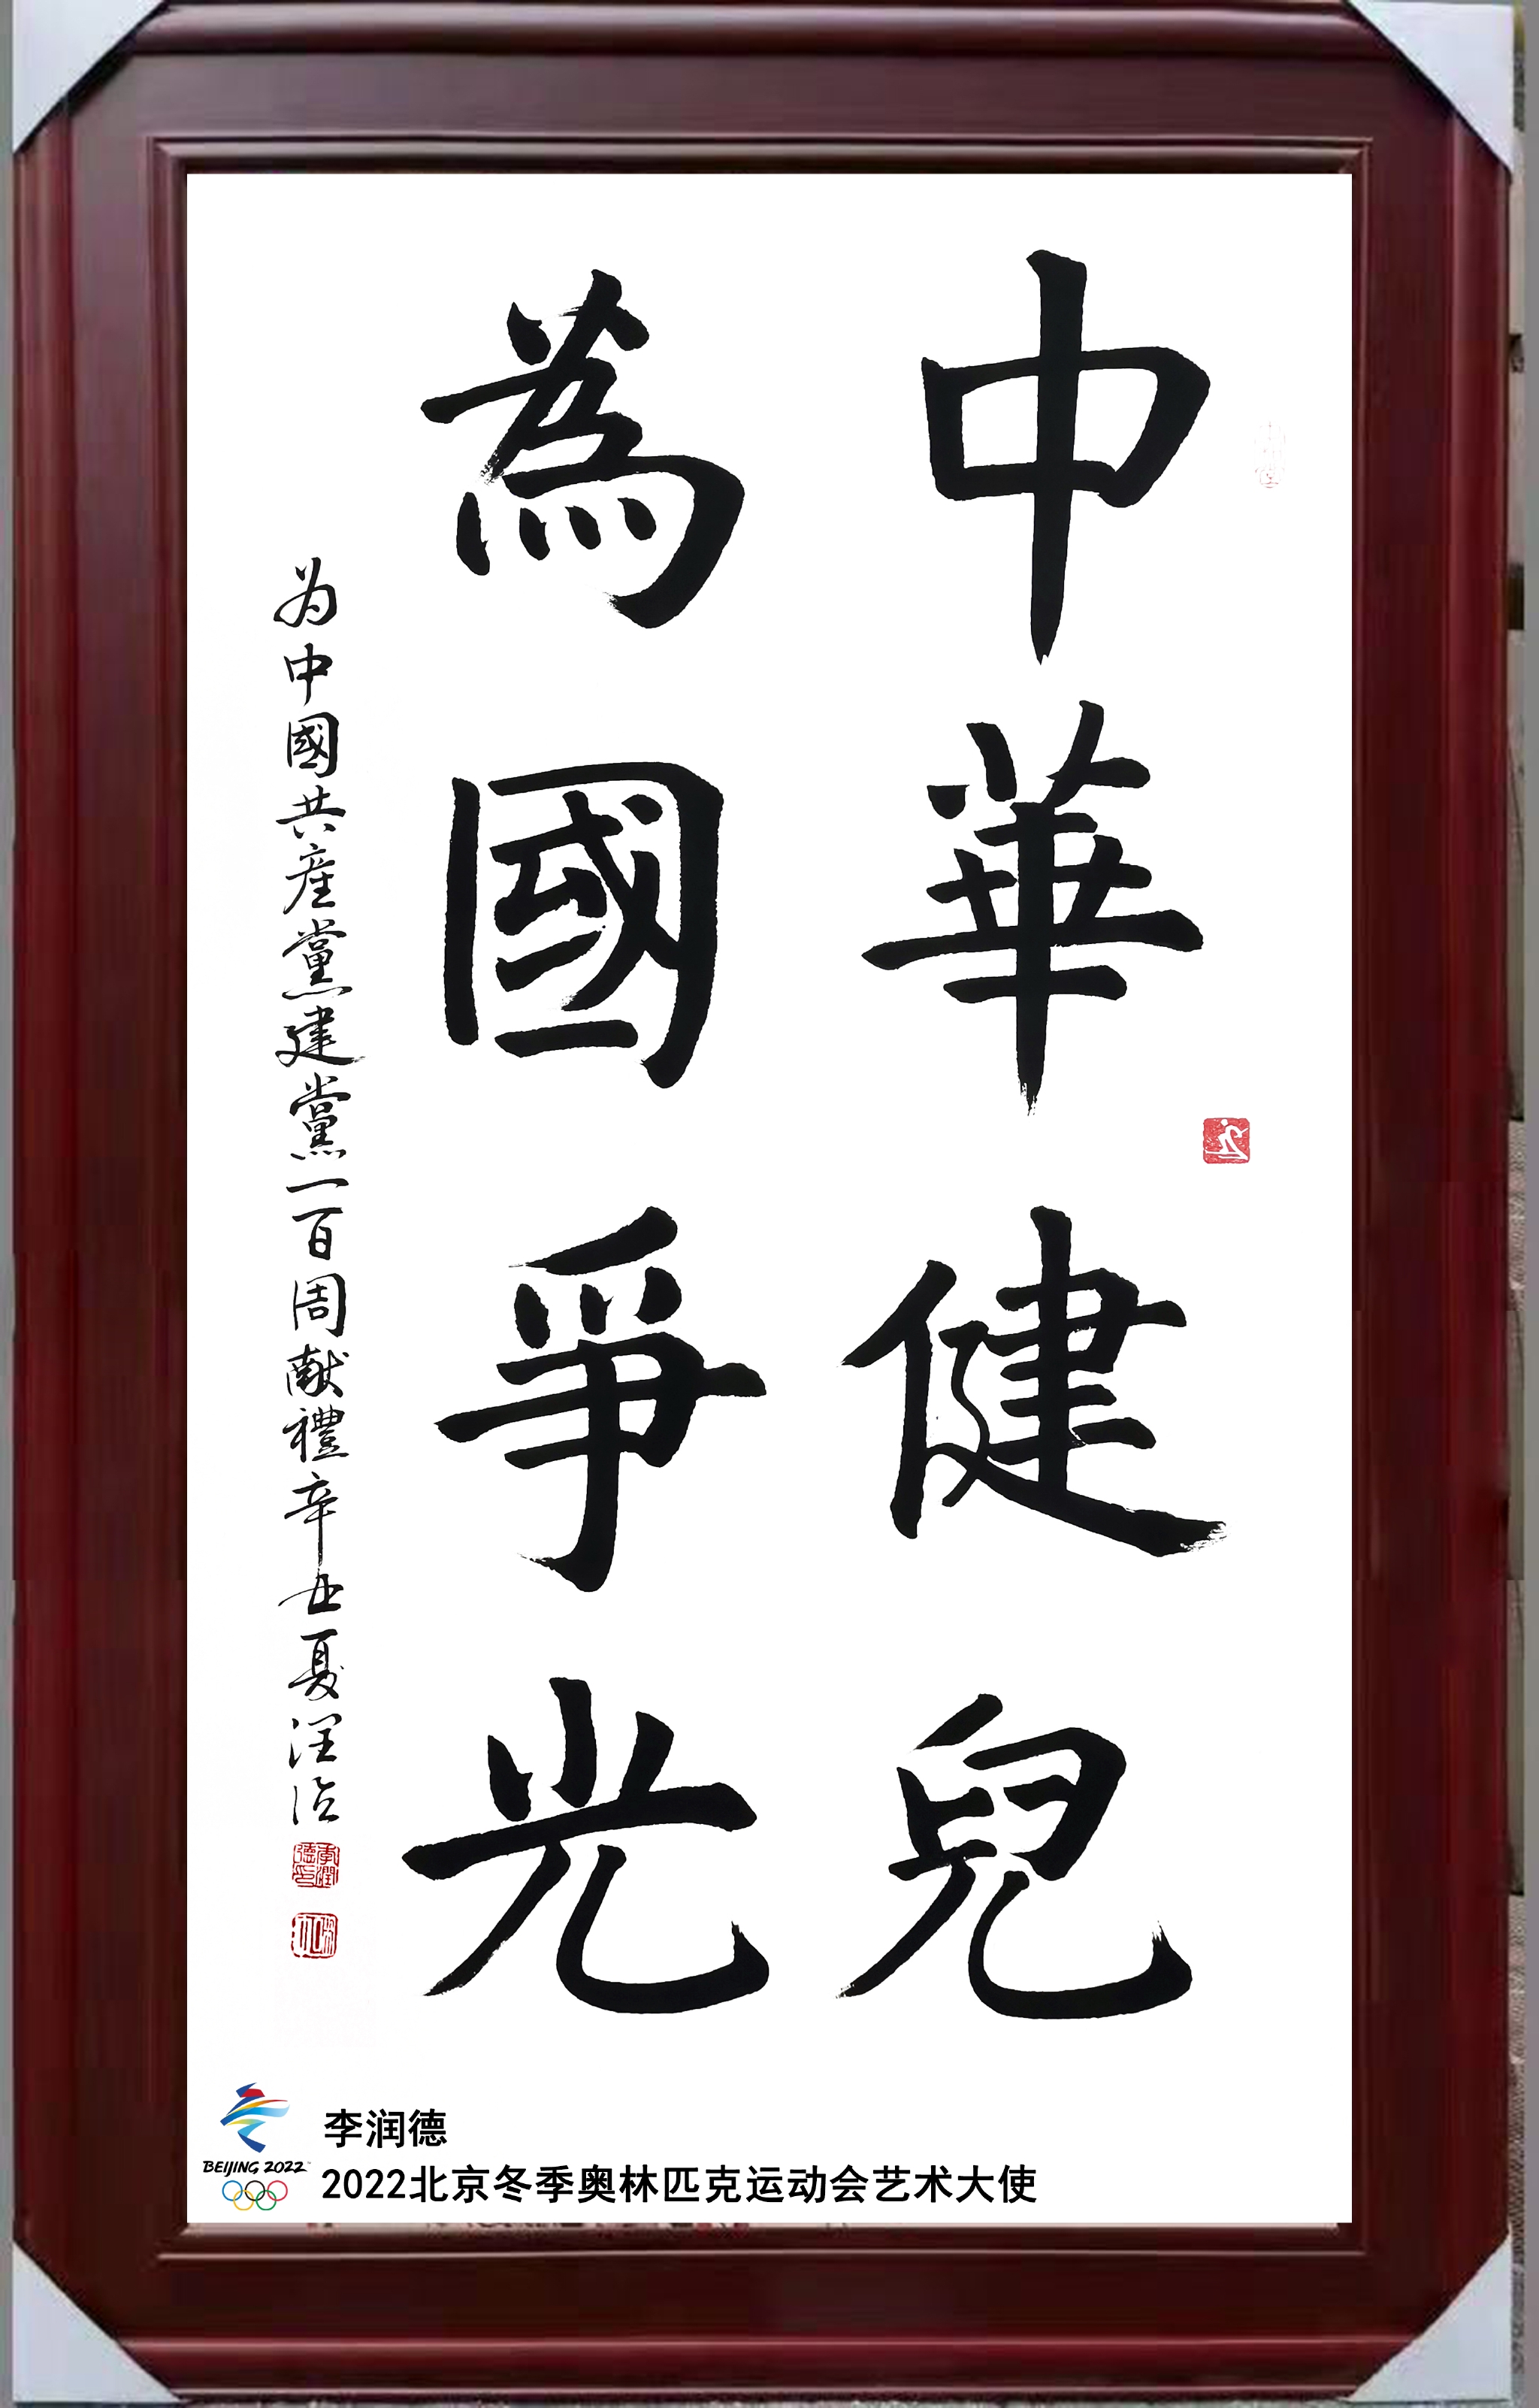 中華健兒
為國爭光
为中國共産黨建黨一百周献禮辛丑夏润德
李润德印
李润德
BEIJING 2022
2022北京冬季奥林匹克运动会艺术大使